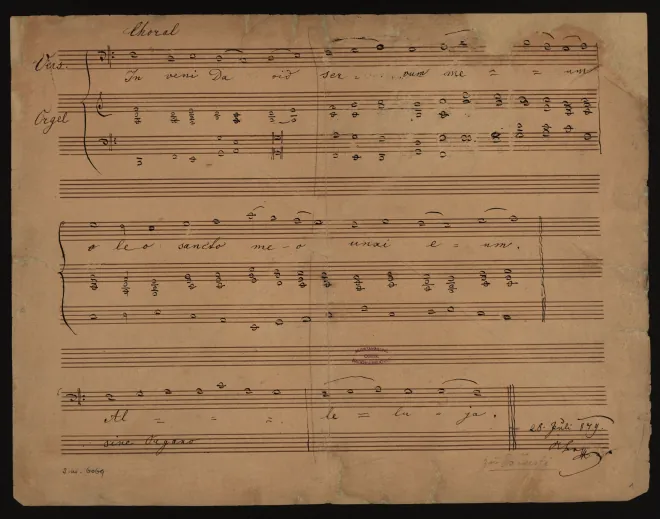 Choral
Vers.
In veni Da vid ser - vum me = = um
Orgel
o le o sancto me-o unxi e = um.
Al = = = le = lu = ja.
sine Organo
28. Juli 879.